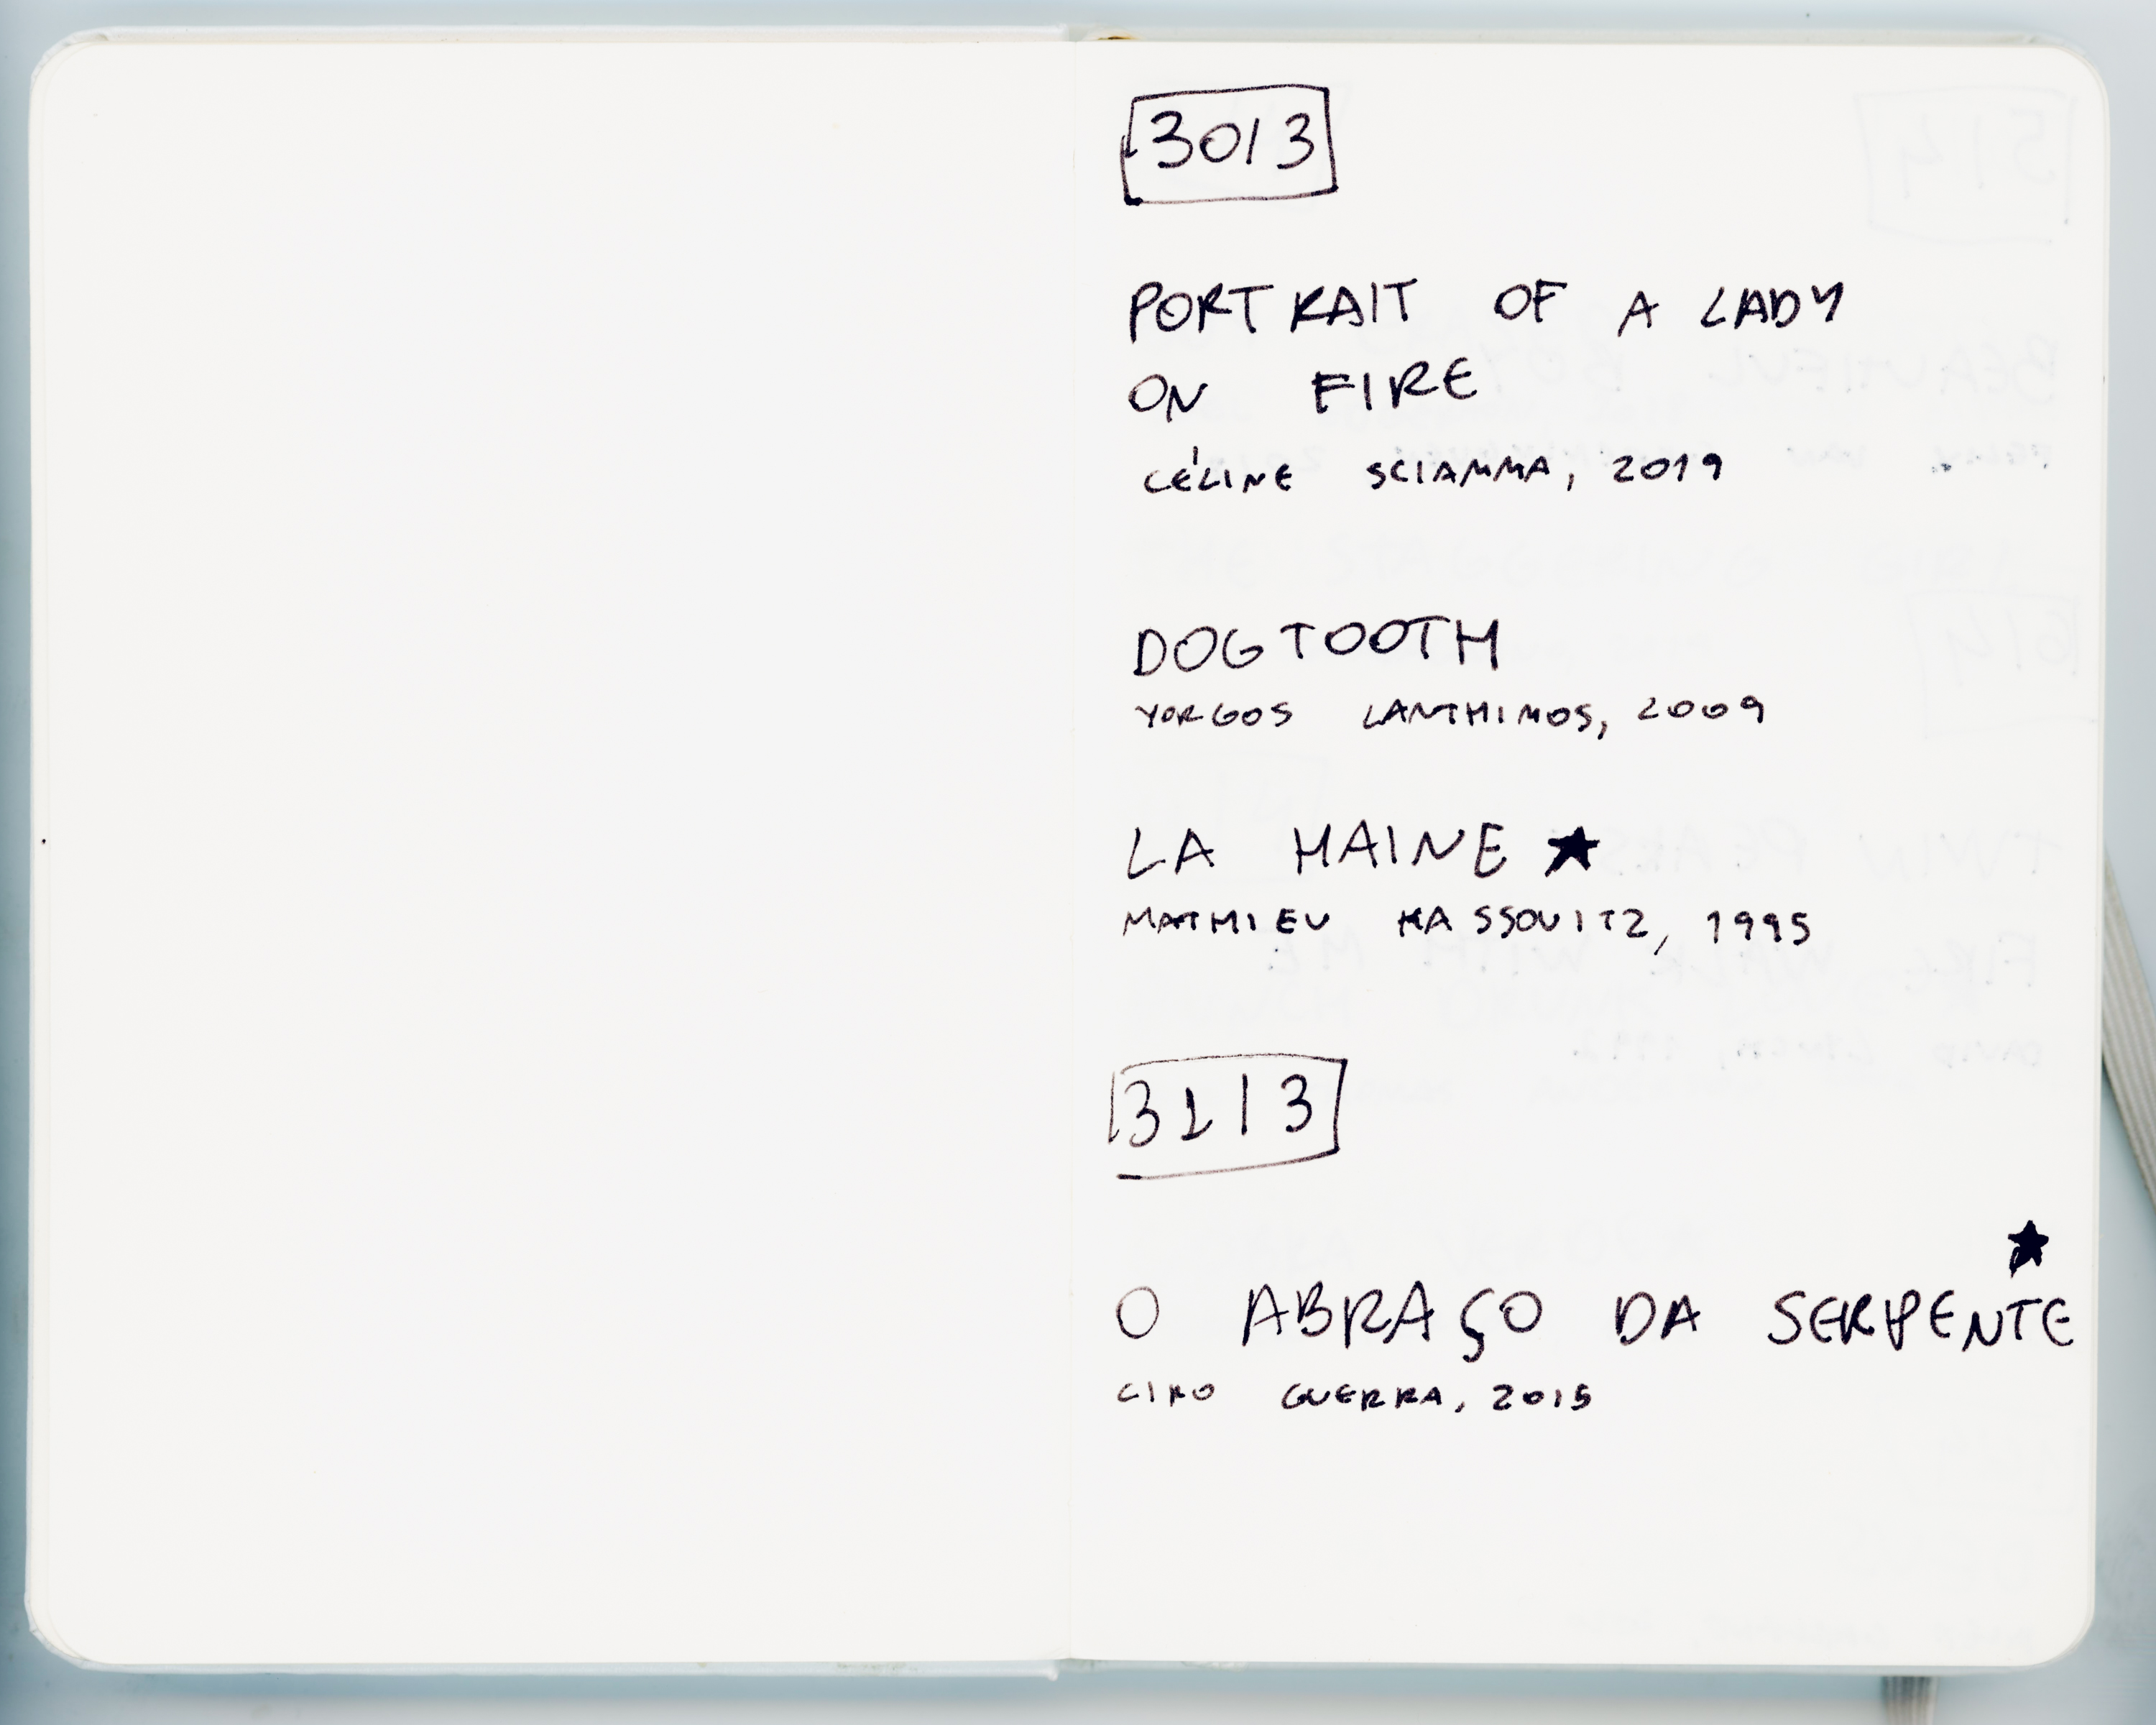 30/3
PORTRAIT OF A LADY
ON FIRE
CÉLINE SCIAMMA, 2019
DOGTOOTH
YORGOS LANTHIMOS, 2009
LA HAINE ★
MATHIEU KASSOVITZ, 1995
31/3
★
O ABRAÇO DA SERPENTE
CIRO GUERRA, 2015